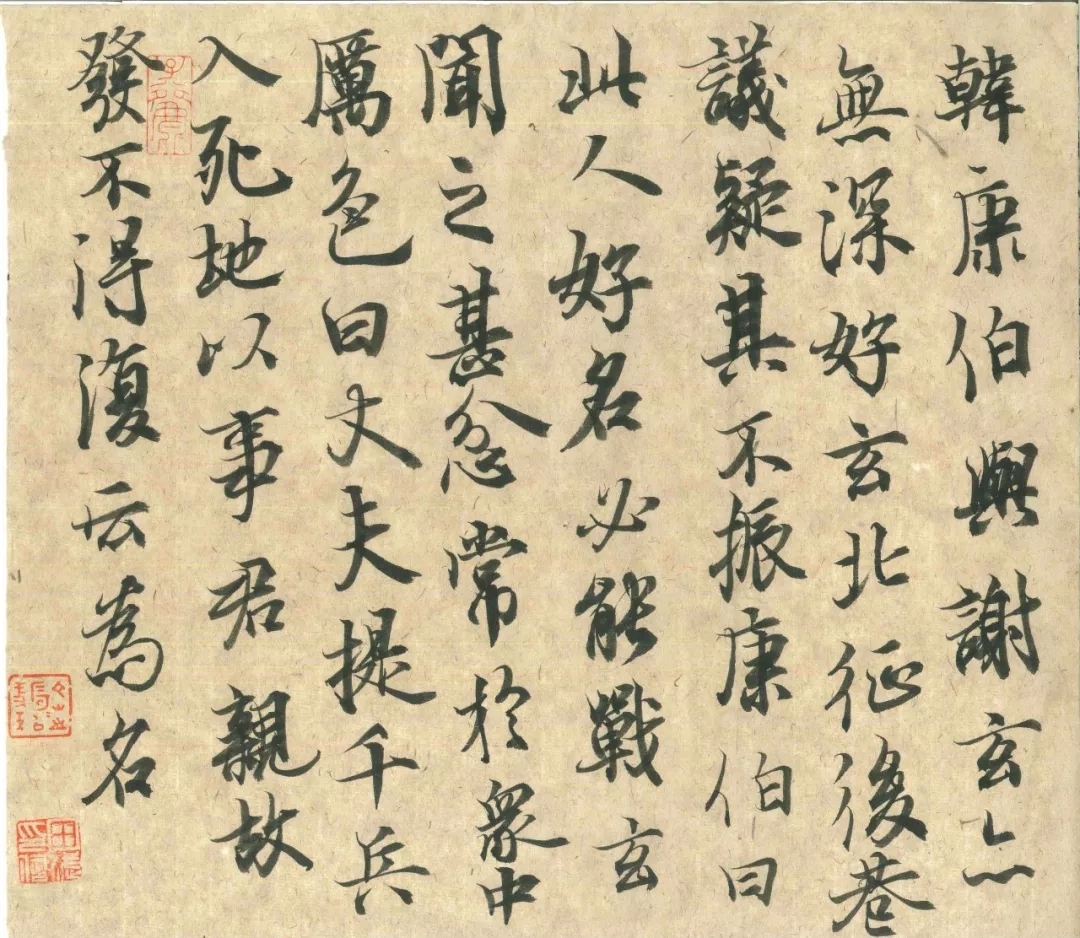 韓康伯與謝玄亦
無深好玄北征後巷
議疑其不振康伯曰
此人好名必能戰玄
聞之甚忿常於衆中
厲色曰丈夫提千兵
入死地以事君親故
發不得復云為名